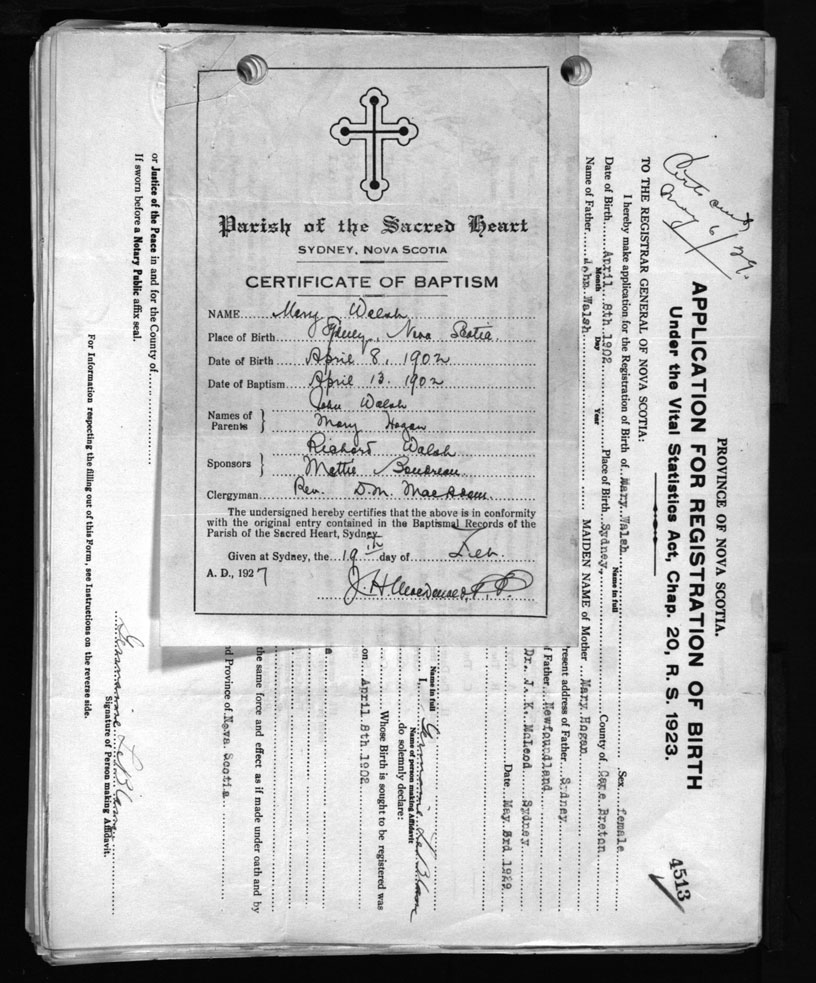 Parish of the Sacred Heart
SYDNEY, NOVA SCOTIA
CERTIFICATE OF BAPTISM
NAME Mary Walsh
Place of Birth Sydney, Nova Scotia.
Date of Birth April 8, 1902
Date of Baptism April 13. 1902
Names of Parents } John Walsh
Mary Hogan
Sponsors } Richard Walsh
Mattie Boudreau
Clergyman Rev. D.M. MacAdam.
The undersigned hereby certifies that the above is in conformity
with the original entry contained in the Baptismal Records of the
Parish of the Sacred Heart, Sydney.
Given at Sydney, the 19th day of
A. D., 1927
J. H. P.P.
PROVINCE OF NOVA SCOTIA.
APPLICATION FOR REGISTRATION OF BIRTH
Under the Vital Statistics Act, Chap. 20, R. S. 1923.
4513
May 6/29.
TO THE REGISTRAR GENERAL OF NOVA SCOTIA:
I hereby make application for the Registration of Birth of Mary Walsh Sex female
Name in full
Date of Birth April 8th 1902 Place of Birth Sydney, County of Cape Breton
Month Day Year
Name of Father John Walsh MAIDEN NAME of Mother Mary Hogan
resent address of Father Sydney
f Father Newfoundland
Dr. J. K. McLeod Sydney
Date May 3rd 1929
Name in full
I, Germaine LeBlanc
Name of person making Affidavit
do solemnly declare:
Whose Birth is sought to be registered was
on April 8th 1902
the same force and effect as if made under oath and by
d Province of Nova Scotia
or Justice of the Peace in and for the County of
If sworn before a Notary Public affix seal.
Germaine LeBlanc
Signature of Person making Affidavit.
For Information respecting the filling out of this Form, see Instructions on the reverse side.